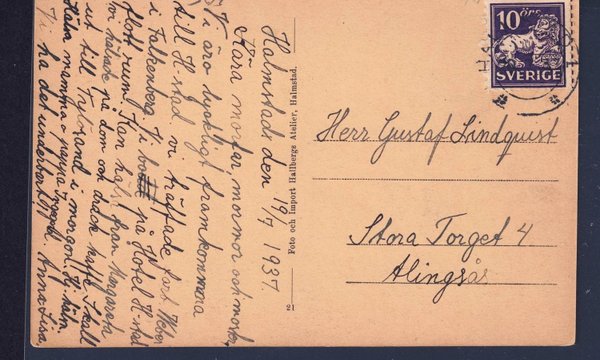 Halmstad den 19/7 1937.
Kära morfar, mormor och moster,
Vi äro lyckligt framkomna
till H-stad, vi träffade fast. Weber
i Falkenberg. Vi bo på Hotel H-stad
flott rum! Kan hälsa från Margareta
vi hälsade på dom och drack kaffe. Skall
ut till Tylösand i morgon. Hj. häls.
Hälsa mamma o pappa
ha det underbart Anna-Lisa.
Foto och Import Hallbergs Atelier, Halmstad.
21
10 ÖRE
SVERIGE
Herr Gustaf Lindquist
Stora Torget 4
Alingsås